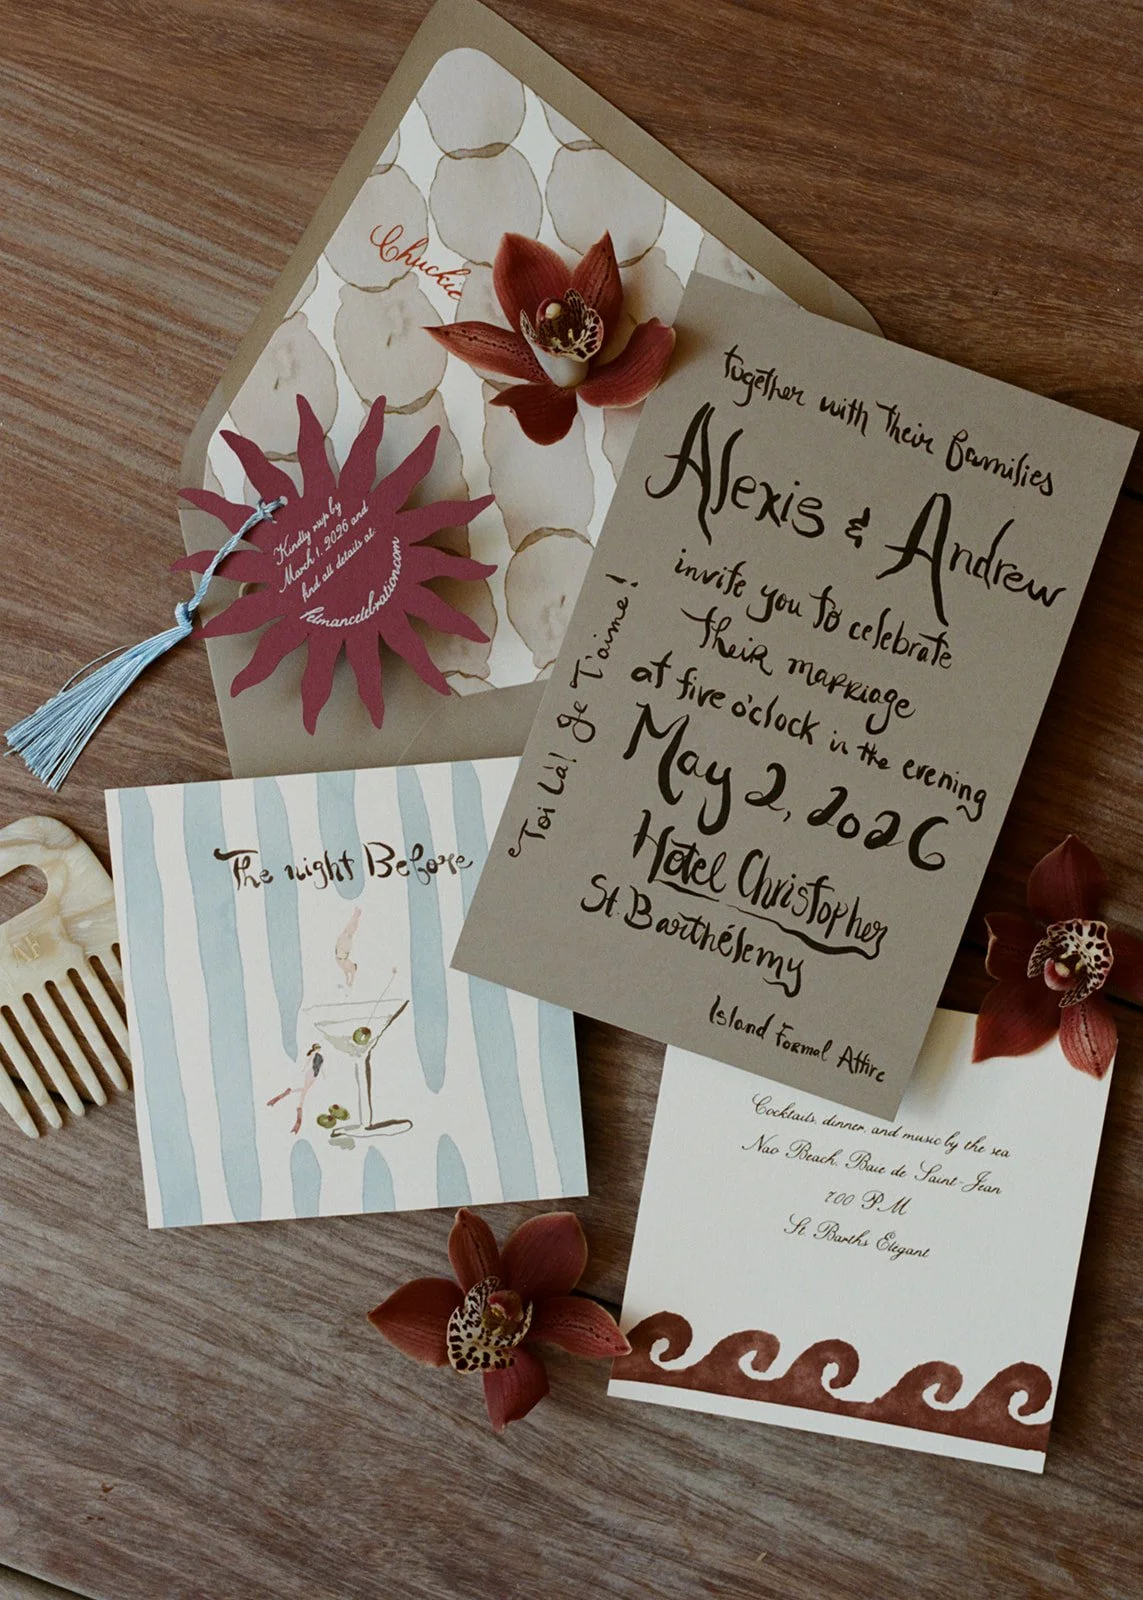 Chuckie
Kindly rsvp by
March 1, 2026 and
find all details at:
felmancelebration.com
together with their families
Alexis & Andrew
invite you to celebrate
their marriage
at five o'clock in the evening
May 2, 2026
Hotel Christopher
St. Barthélemy
Island Formal Attire
Toi Là! Je T'aime!
The night Before
Cocktails, dinner, and music by the sea
Nao Beach, Baie de Saint-Jean
7:00 PM
St. Barths Elegant